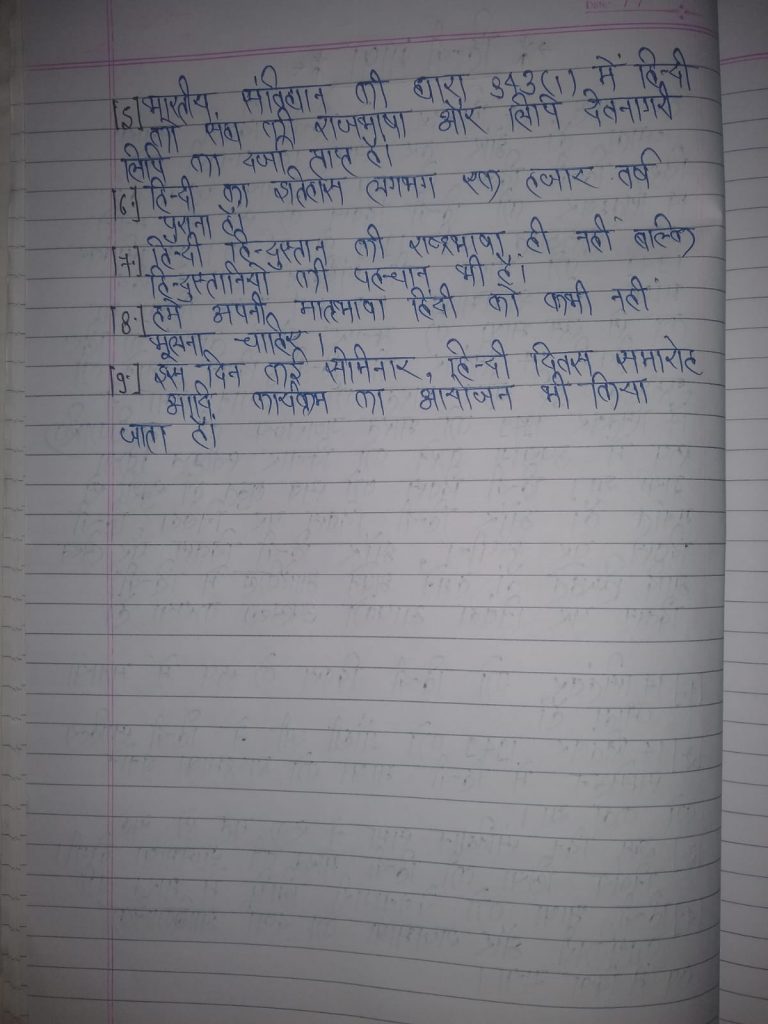 [5] भारतीय संविधान की धारा 343(1) में हिन्दी
को संघ की राजभाषा और लिपि देवनागरी
लिपि का दर्जा प्राप्त है।
[6.] हिन्दी का इतिहास लगभग एक हजार वर्ष
पुराना है।
[7.] हिन्दी हिन्दुस्तान की राष्ट्रभाषा ही नहीं बल्कि
हिन्दुस्तानियों की पहचान भी है।
[8.] हमें अपनी मातृभाषा हिंदी को कभी नहीं
भूलना चाहिए।
[9.] इस दिन कई सेमिनार, हिन्दी दिवस समारोह
आदि कार्यक्रम का आयोजन भी किया
जाता है।